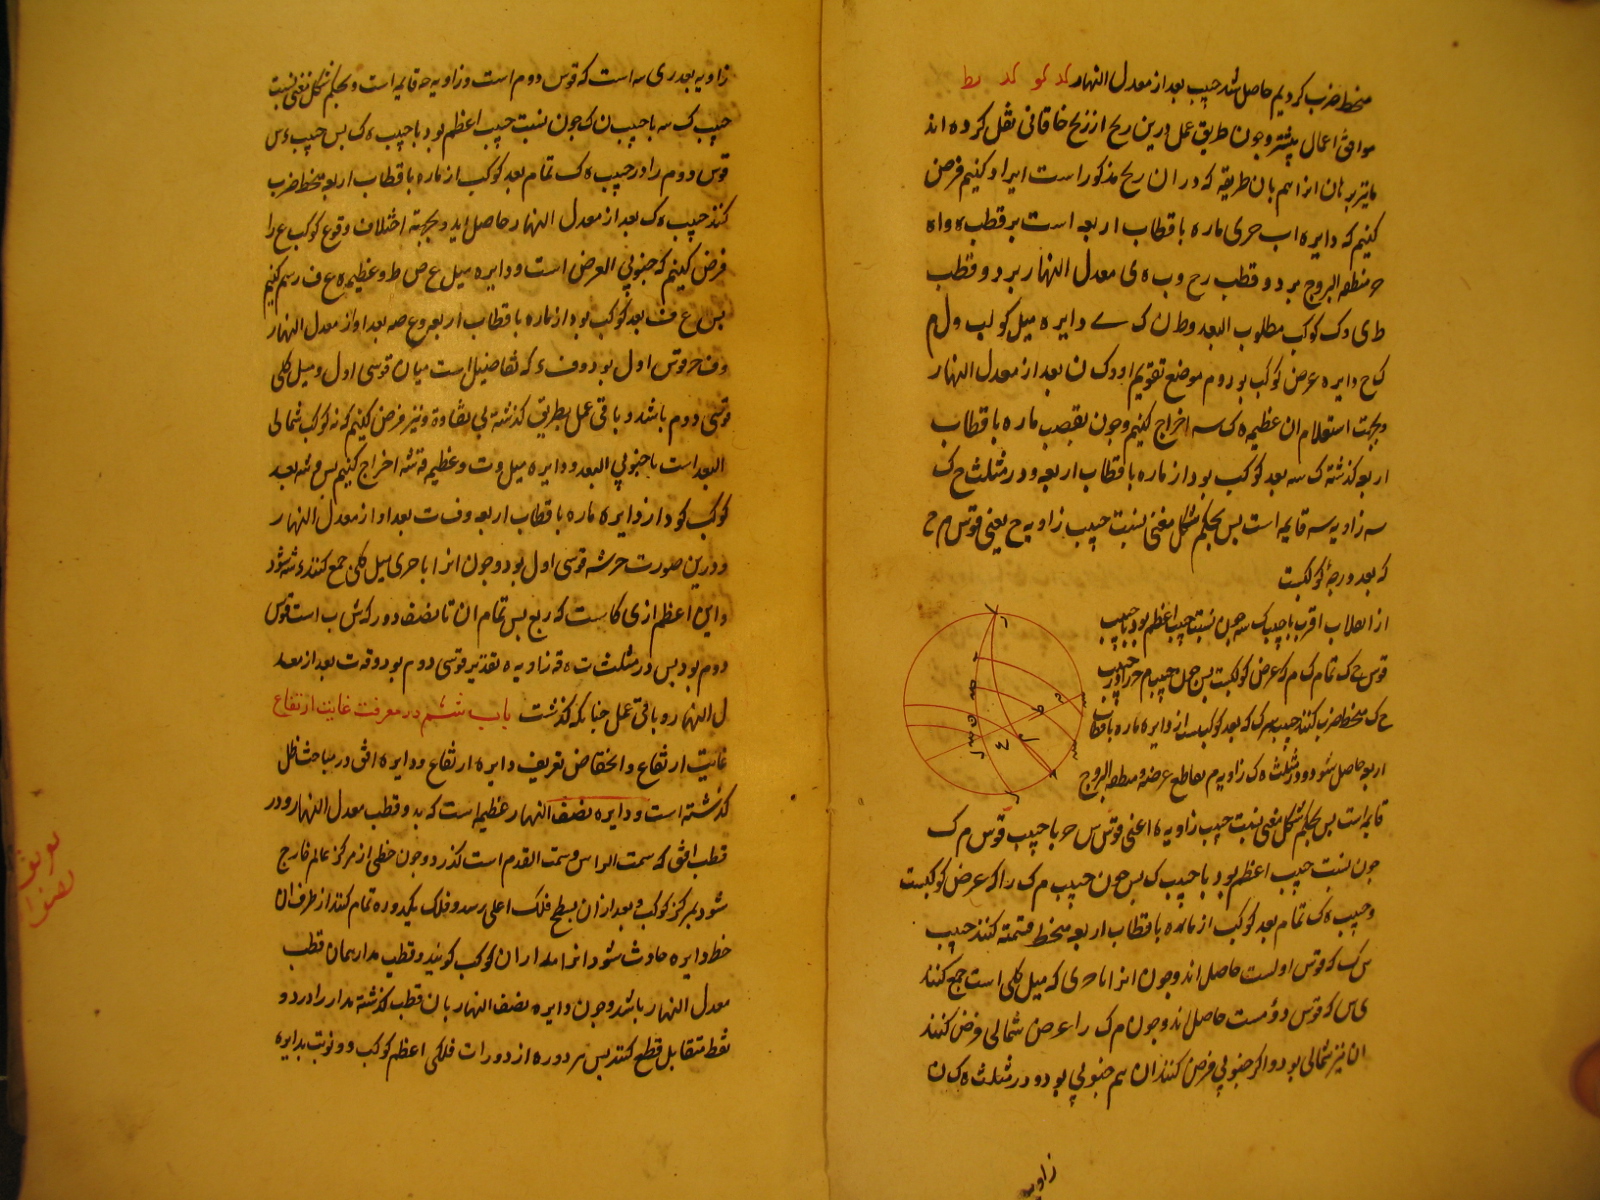 منحط ضرب کردیم حاصل شد جیب بعد از معدل النهار کد کو کد رط
موافق اعمال پیشتر و چون طریق عمل درین زیج از زیج خاقانی نقل کرده اند
ما نیز برهان انرا هم بان طریقه که در ان زیج مذکور است ایراد کنیم فرض
کنیم که دایره اب حری ماره باقطاب اربعه است بر قطب ه واه
ح منطقه البروج بر دو قطب رح و ب ه ی معدل النهار بر دو قطب
ط ی و ک کوکب مطلوب البعد و ط ن ک دایره میل کوکب و ل م
ک ح دایره عرض کوکب بود و م موضع تقویم او و ک ن بعد از معدل النهار
و بجهت استعلام ان عظیمه ه ک سه اخراج کنیم و چون بقصب ماره باقطاب
اربعه کذشته ک سه بعد کوکب بود از ماره باقطاب اربعه و در مثلث ح ک
سه زاویه سه قایمه است پس بحکم شکل مغنی نسبت جیب زاویه ح یعنی قوس م ح
که بعد درجه کوکبست
از انقلاب اقرب با جیب ک سه چون نسبت جیب اعظم بود با جیب
قوس ح ک تمام ک م که عرض کوکبست پس چون جیب م ح را در جیب
ح ک منحط ضرب کنند جیب سه ک که بعد کوکبست از دایره ماره باقطاب
اربعه حاصل شود و در مثلث ه ک م زاویه م تقاطع عرضه و منطقه البروج
قایمه است پس بحکم شکل مغنی نسبت جیب زاویه ه اعنی قوس س ح با جیب قوس م ک
چون نسبت جیب اعظم بود با جیب ه ک پس چون جیب م ک را که عرض کوکبست
و جیب ه ک تمام بعد کوکب از ماره باقطاب اربعه منحط قسمته کنند جیب
س ح که قوس اولست حاصل اید و چون انرا با ح ی که میل کلی است جمع کنند
ی س که قوس دومست حاصل اید و چون م ک را عرض شمالی فرض کنند
ان نیز شمالی بود و اکر جنوبی فرض کنند ان هم جنوبی بود و در مثلث ه ک ن
زاویه
زاویه بعد ری سه است که قوس دوم است و زاویه ح قایمه است و بحکم شکل مغنی نسبت
جیب ک سه با جیب ن ک چون نسبت جیب اعظم بود با جیب ه ک پس جیب ی س
قوس دوم را در جیب ه ک تمام بعد کوکب از ماره باقطاب اربعه منحط ضرب
کنند جیب ه ک بعد از معدل النهار حاصل اید و بجهة اختلاف وقوع کوکب ع را
فرض کنیم که جنوبی العرض است و دایره میل ع ص ط و عظیمه ه ع ف رسم کنیم
پس ع ف بعد کوکب بود از ماره باقطاب اربعه و ع صه بعد او از معدل النهار
و ف ح قوس اول بود و ف ی که تفاضل است میان قوسی اول و میل کلی
قوسی دوم باشد و باقی عمل بطریق کذشته بی تفاوة و نیز فرض کنیم که نه کوکب شمالی
البعد است یا جنوبی البعد و دایره میل وت و عظیمه ق شه اخراج کنیم پس و شه بعد
کوکب کود از دایره ماره باقطاب اربعه و ف ت بعد او از معدل النهار
و درین صورت ح شه قوسی اول بود و چون انرا با ح ی میل کلی جمع کنند ی شه شود
و این اعظم از ی کاست که ربع پس تمام ان تا نصف دور که ش ب است قوس
دوم بود پس در مثلث ت ه ق زاویه ه تقدیر قوسی دوم بود و ق ت بعد از معد
ل النهار و باقی عمل چنانکه کذشت باب ششم در معرفت غایت ارتفاع
غایت ارتفاع و انخفاض تعریف دایره ارتفاع و دایره افق در مباحث ظل
کذشته است و دایره نصف النهار عظیمه است که بدو قطب معدل النهار و در
قطب افق که سمت الراس و سمت القدم است کذرد و چون خطی از مرکز عالم خارج
شود بمرکز کوکب و بعد از ان بسطح فلک اعلی رسد و فلک یکدوره تمام کند از طرف ان
خط دایره حادث شود انرا مدار ان کوکب کویند و قطب مدار همان قطب
معدل النهار باشد و چون دایره نصف النهار بان قطب کذشته مدار را در دو
نقطه متقابل قطع کند پس هر دوره از دورات فلکی اعظم کوکب دو نوبت بدایره
تعریف
نصف ا